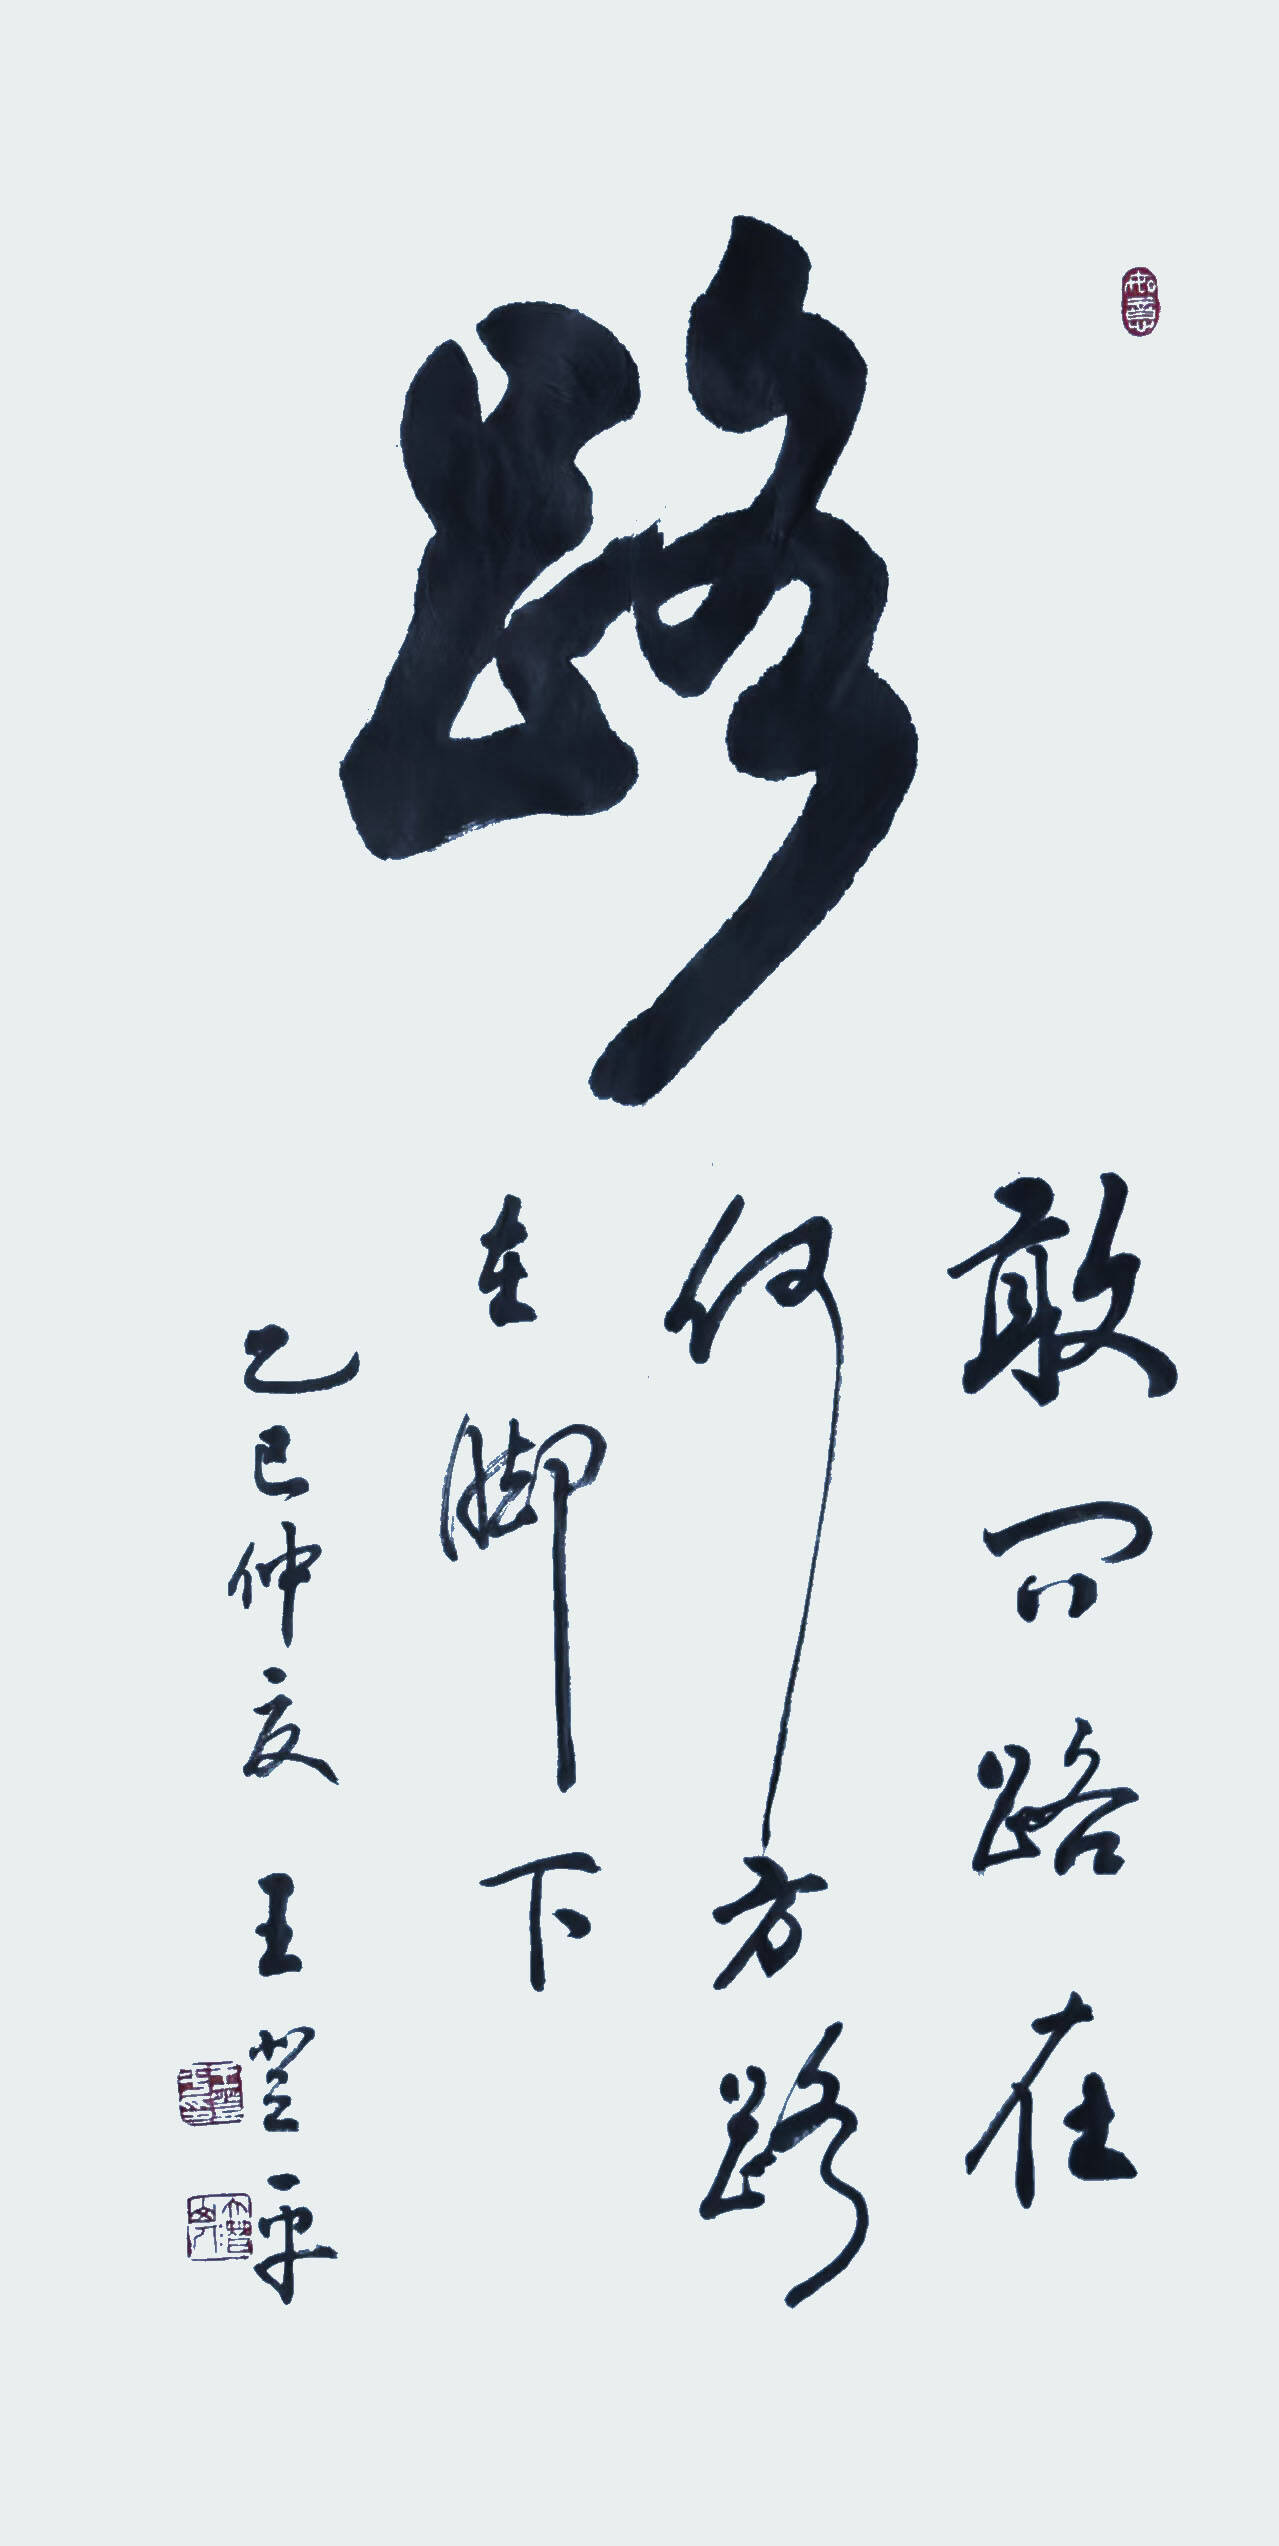 路
敢问路在
何方路
在脚下
乙巳仲夏 王登平